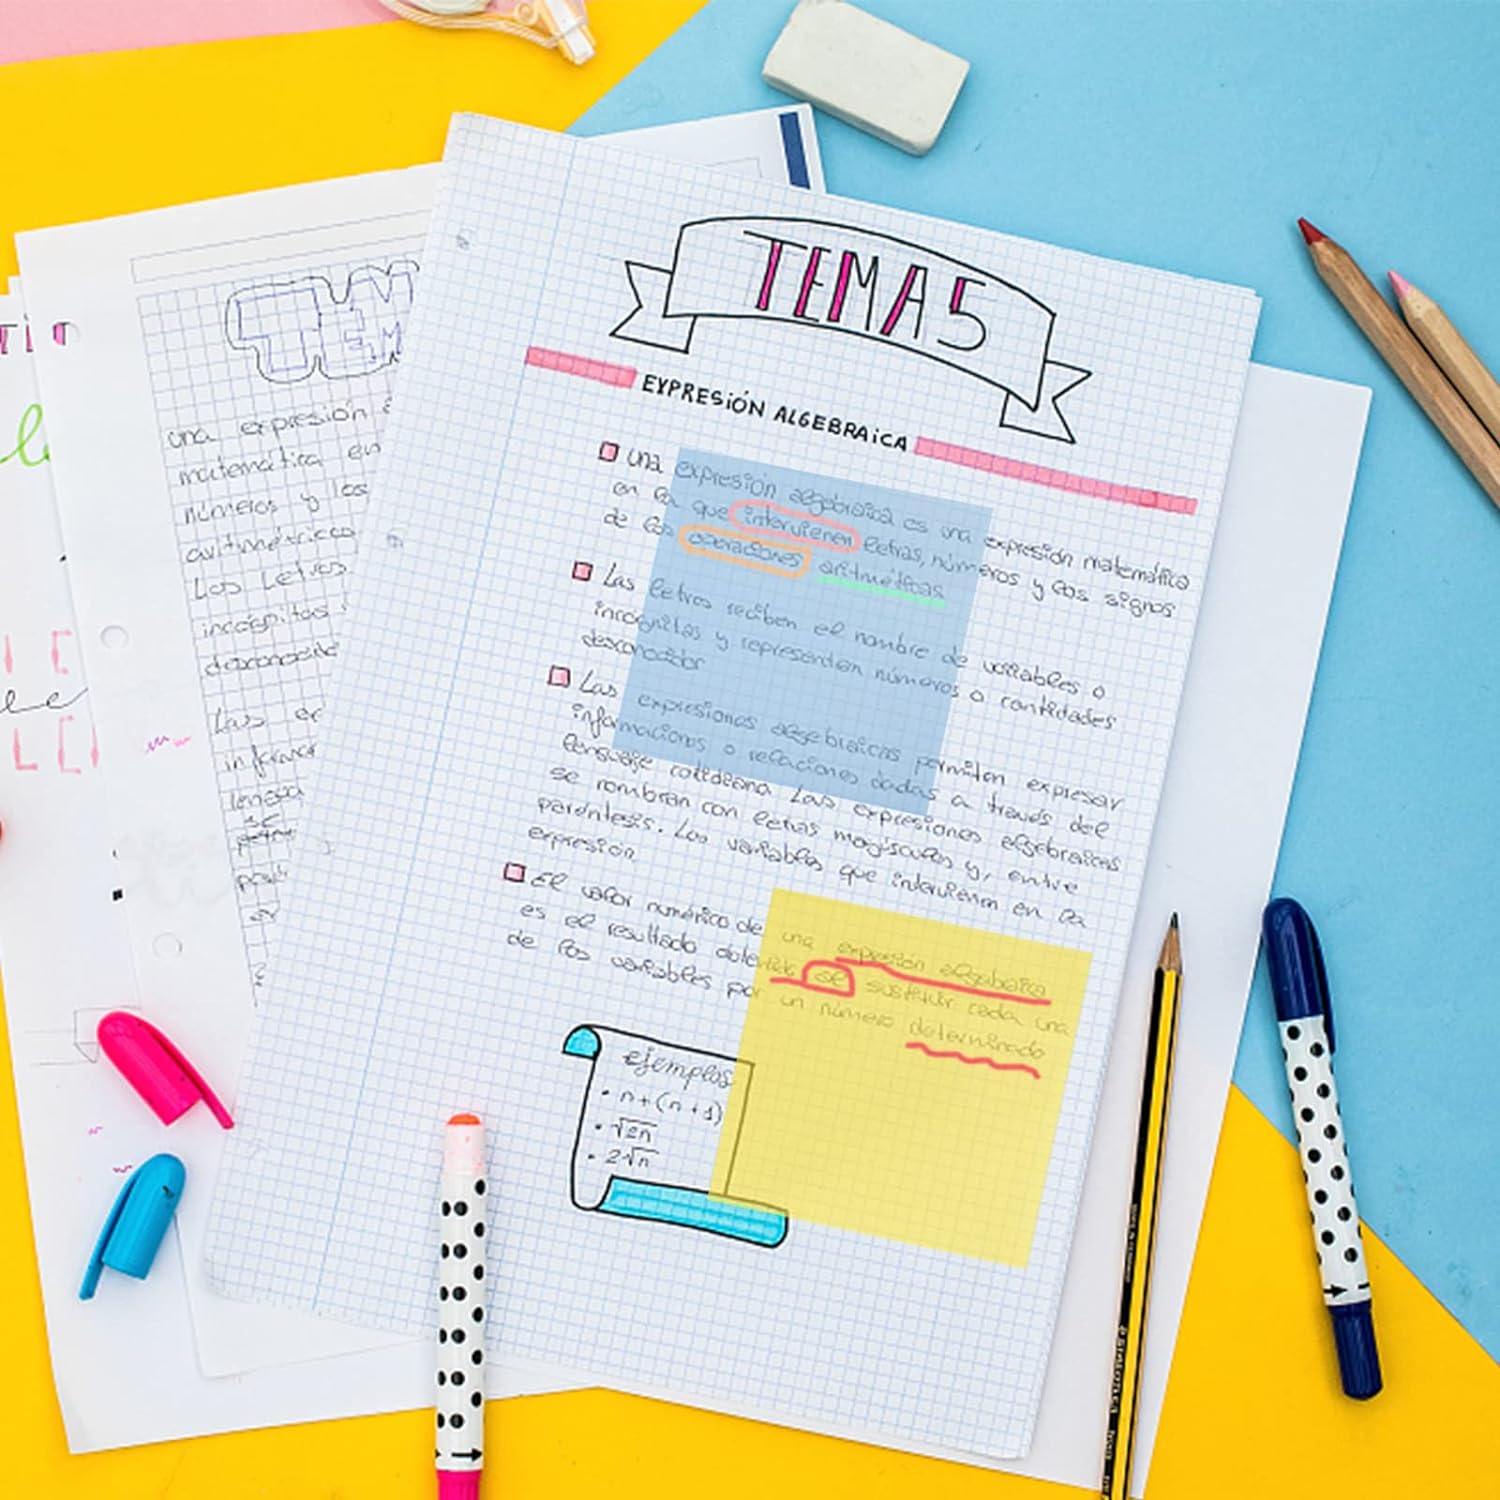 TEMA 5
EXPRESIÓN ALGEBRAICA
una expresión algebraica es una expresión matemática
en la que intervienen letras, números y los signos
de las operaciones aritméticas
Las letras reciben el nombre de variables o
incógnitas y representan números o cantidades
desconocidas
Las expresiones algebraicas permiten expresar
informaciones o relaciones dadas a través del
lenguaje cotidiano. Las expresiones algebraicas
se nombran con letras mayúsculas y, entre
paréntesis. Las variables que intervienen en la
expresión
El valor numérico de una expresión algebraica
es el resultado al sustituir cada una
de las variables por un número determinado
ejemplos
• n+(n+1)
• √2n
• 2√n
una expresión
matemática en
números y los
aritméticos
Las Letras
incógnitas
Las